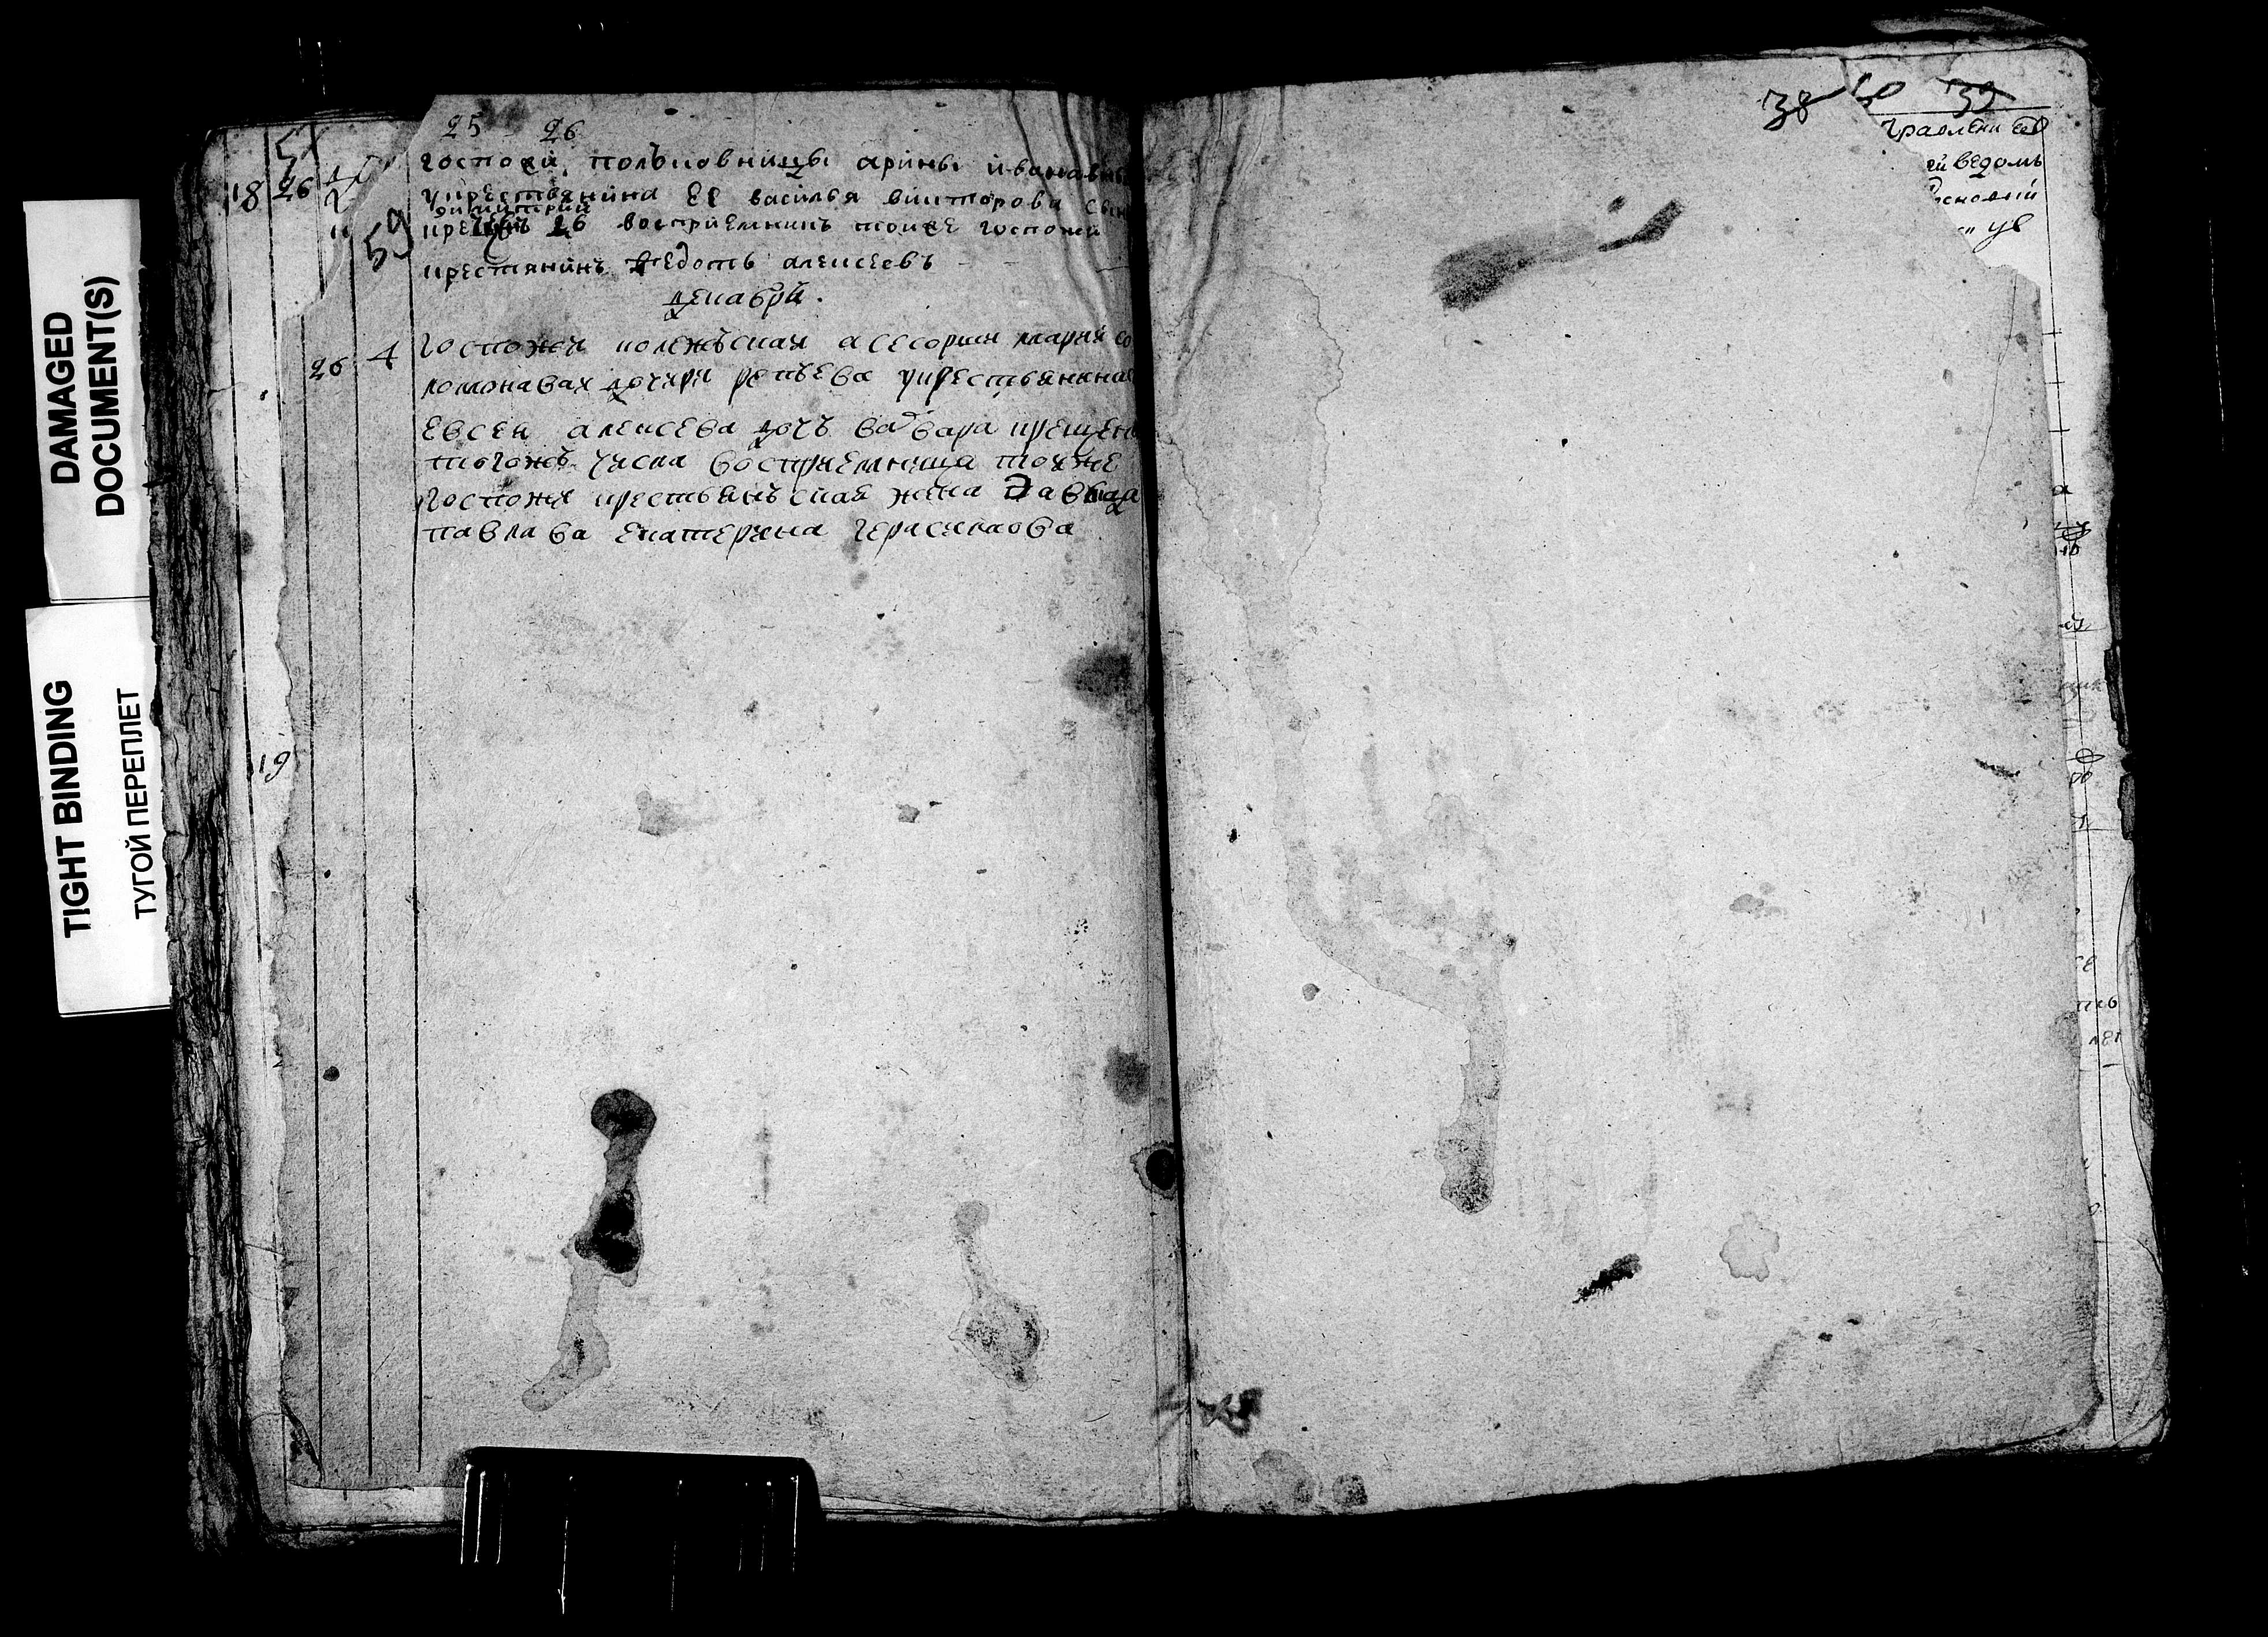 DAMAGED
DOCUMENT(S)
TIGHT BINDING
ТУГОЙ ПЕРЕПЛЕТ
18 26
59
19
25 26
госпожи полъковницы арины ивановны
укрестьянина ее василья викторова сынъ
димитрий
крещенъ 26 восприемникъ тойже госпожи
крестянинъ федотъ алексеевъ
декабря
26 4 госпожи колежъская асесорши марии со
ломонавах дочери репъева укрестьянина
евсея алексева дочъ варвара крещена
тогожъ числа восприемница тояже
госпожи крестьянъская жена давыда
павлава екатерина герасимова
38 39
ведомъ